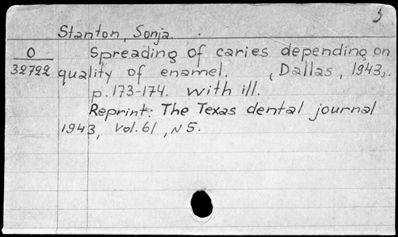 5
Stanton, Sonja.
O Spreading of caries depending on
32722 quality of enamel. , Dallas, 1943,.
p.173-174. with ill.
Reprint: The Texas dental journal
1943, vol.61, N 5.